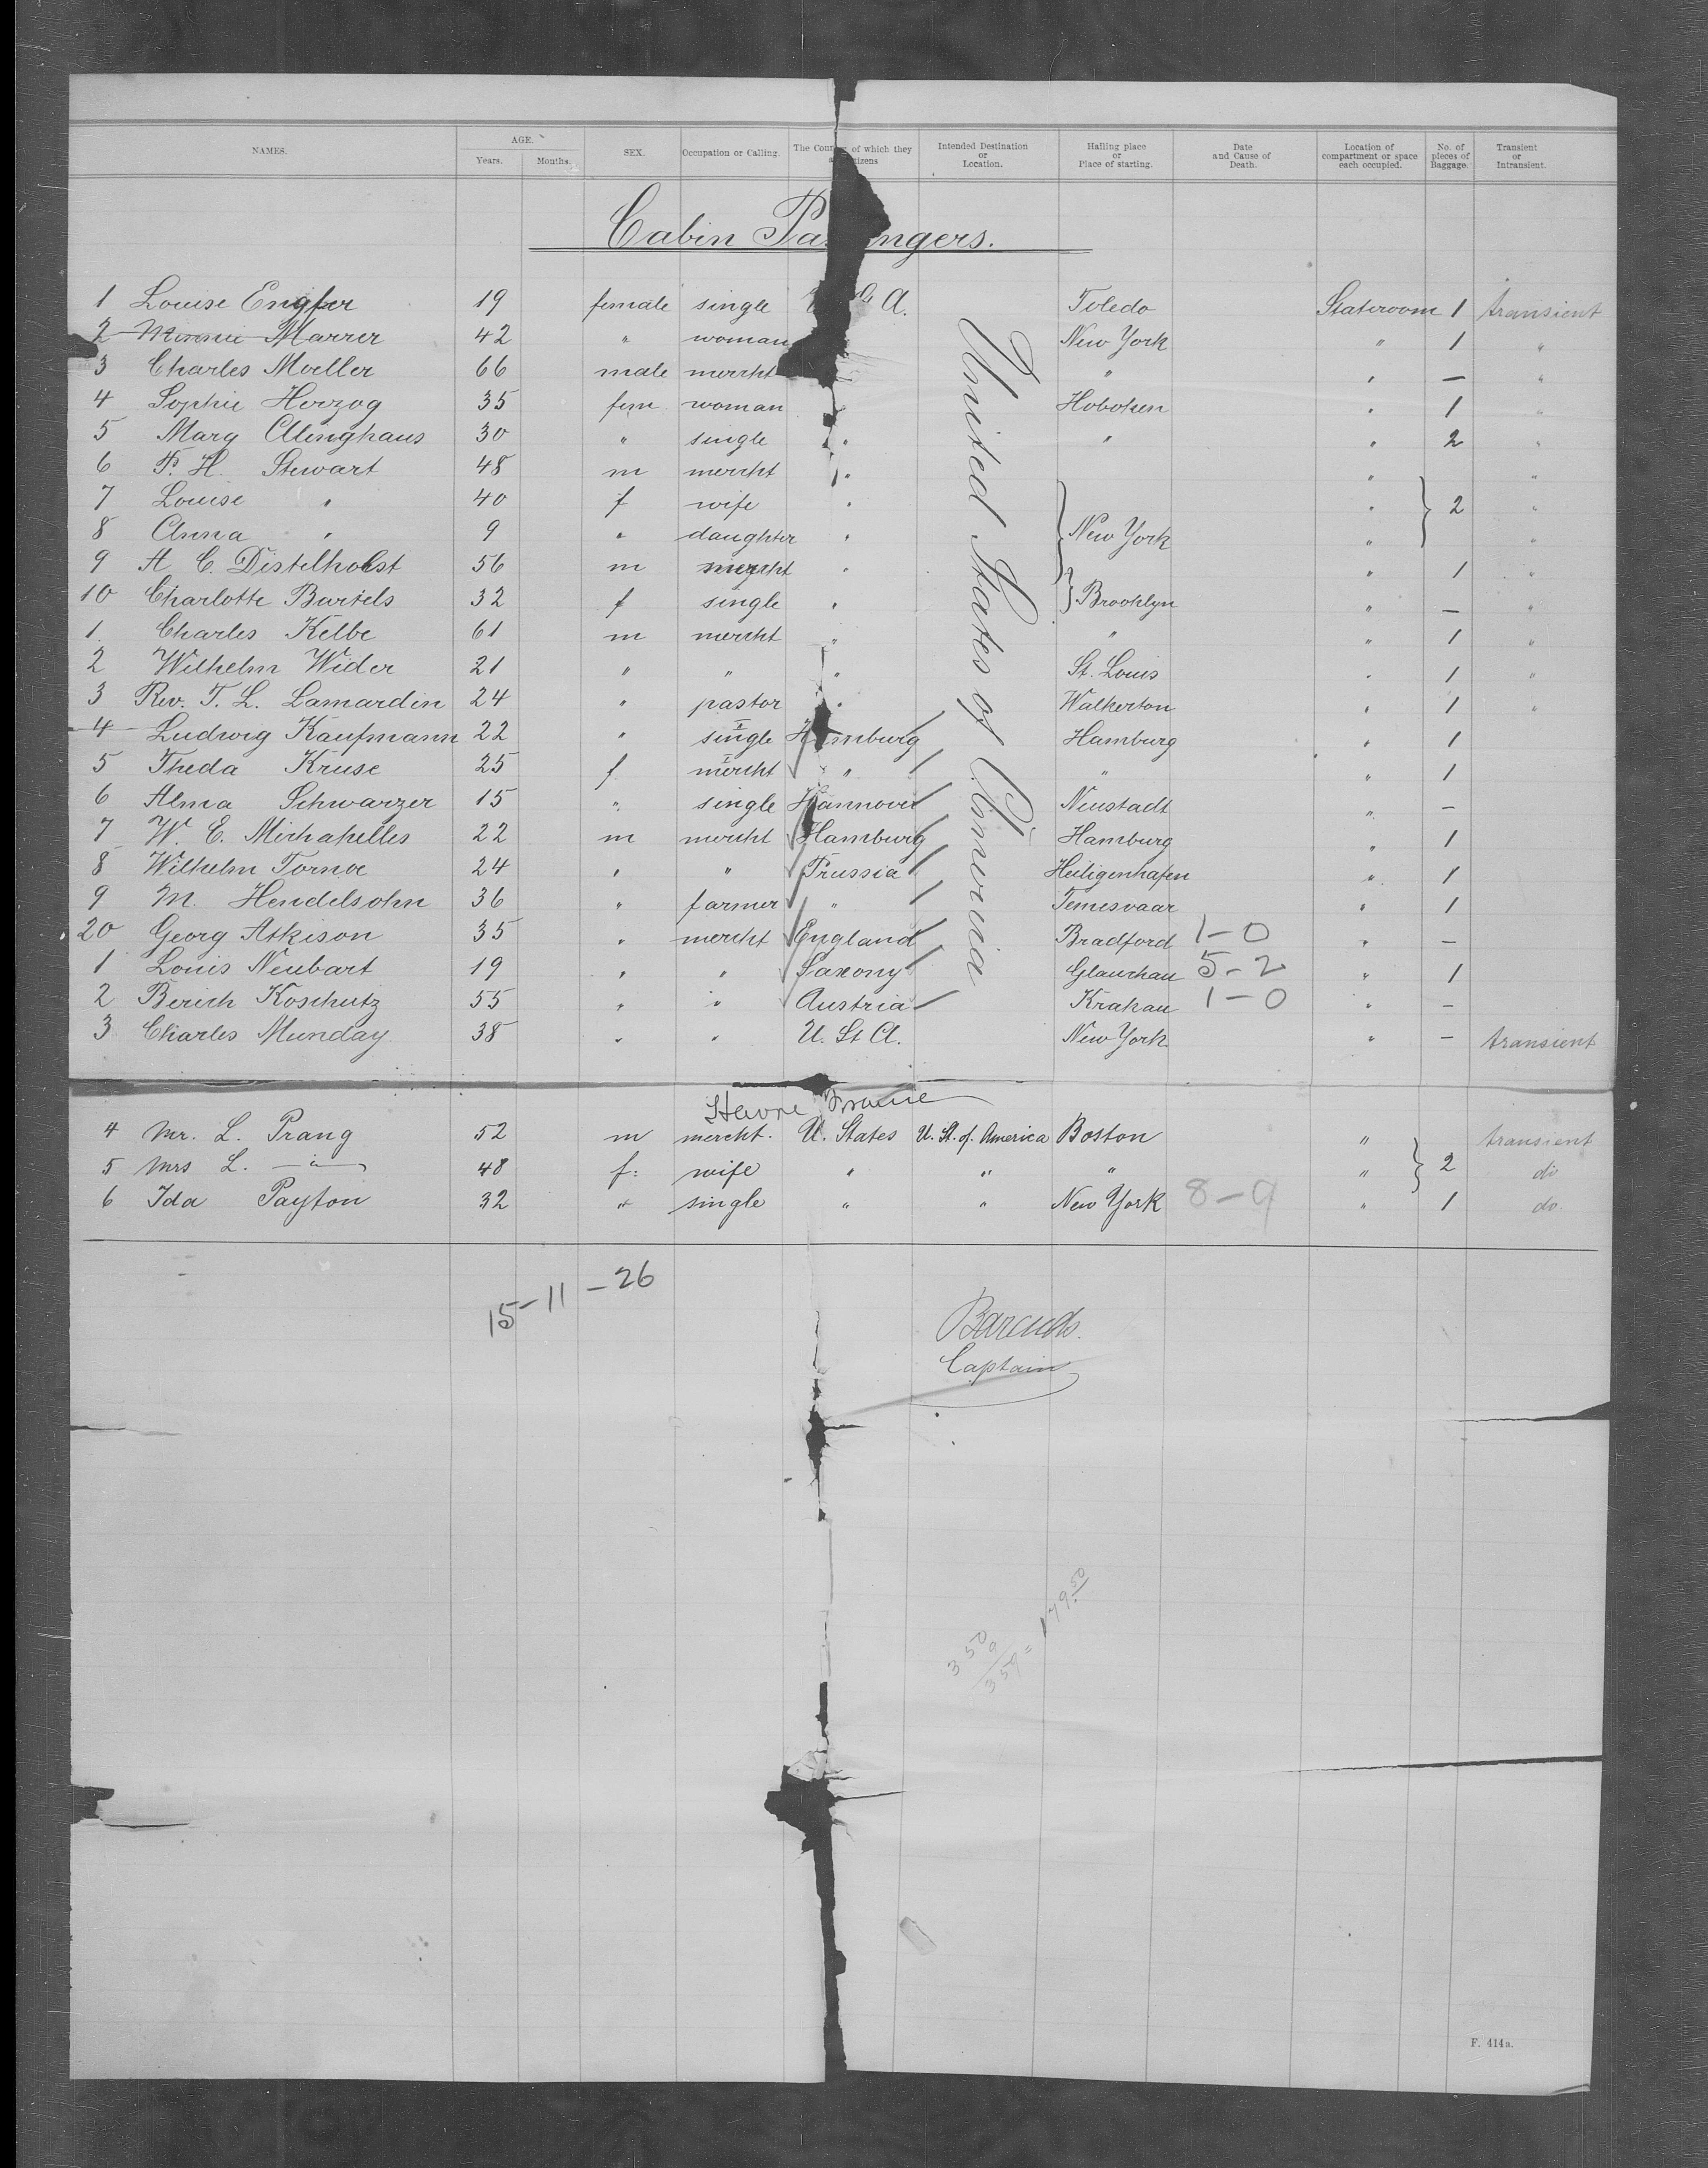 NAMES. AGE. Years. Months. SEX. Occupation or Calling. The Country of which they are citizens Intended Destination or Location. Hailing place or Place of starting. Date and Cause of Death. Location of compartment or space each occupied. No. of pieces of Baggage. Transient or Intransient.
Cabin Passengers.
1 Louise Engfer 19 female single U. St. A. Toledo Stateroom 1 transient
2 Minnie Marrer 42 " woman New York " 1 "
3 Charles Moeller 66 male mercht " " — "
4 Sophie Herzog 35 fem woman " Hoboken " 1 "
5 Mary Ellinghaus 30 " single " " " 2 "
6 F. H. Stewart 48 m mercht " " "
7 Louise " 40 f wife " " 2 "
8 Anna " 9 " daughter " New York " "
9 A C. Distelhorst 56 m mercht " " 1 "
10 Charlotte Bartels 32 f single " Brooklyn " — "
1 Charles Kelbe 61 m mercht " " " 1 "
2 Wilhelm Wider 21 " " " St. Louis " 1 "
3 Rev. T. L. Lamardin 24 " pastor " Walkerton " 1 "
4 Ludwig Kaufmann 22 " single Hamburg Hamburg " 1
5 Theda Kruse 25 f mercht " " " 1
6 Alma Schwarzer 15 " single Hannover Neustadt " —
7 W. E. Michahelles 22 m mercht Hamburg Hamburg " 1
8 Wilhelm Tornoe 24 " " Prussia Heiligenhafen " 1
9 M. Hendelsohn 36 " farmer " Temesvaar " 1
20 Georg Atkison 35 " mercht England Bradford 1-0 " —
1 Louis Neubart 19 " " Saxony Glauchau 5-2 " 1
2 Berich Koschutz 55 " " Austria Krakau 1-0 " —
3 Charles Munday 38 " " U. St A. New York " — transient
United States of America
Havre France
4 Mr. L. Prang 52 m mercht. U. States U. St. of. America Boston " transient
5 Mrs L. —"— 48 f: wife " " " " 2 do
6 Ida Payton 32 " single " " New York 8-9 " 1 do.
15-11-26
Barends.
Captain
350
9
359 = 179.50
F. 414a.